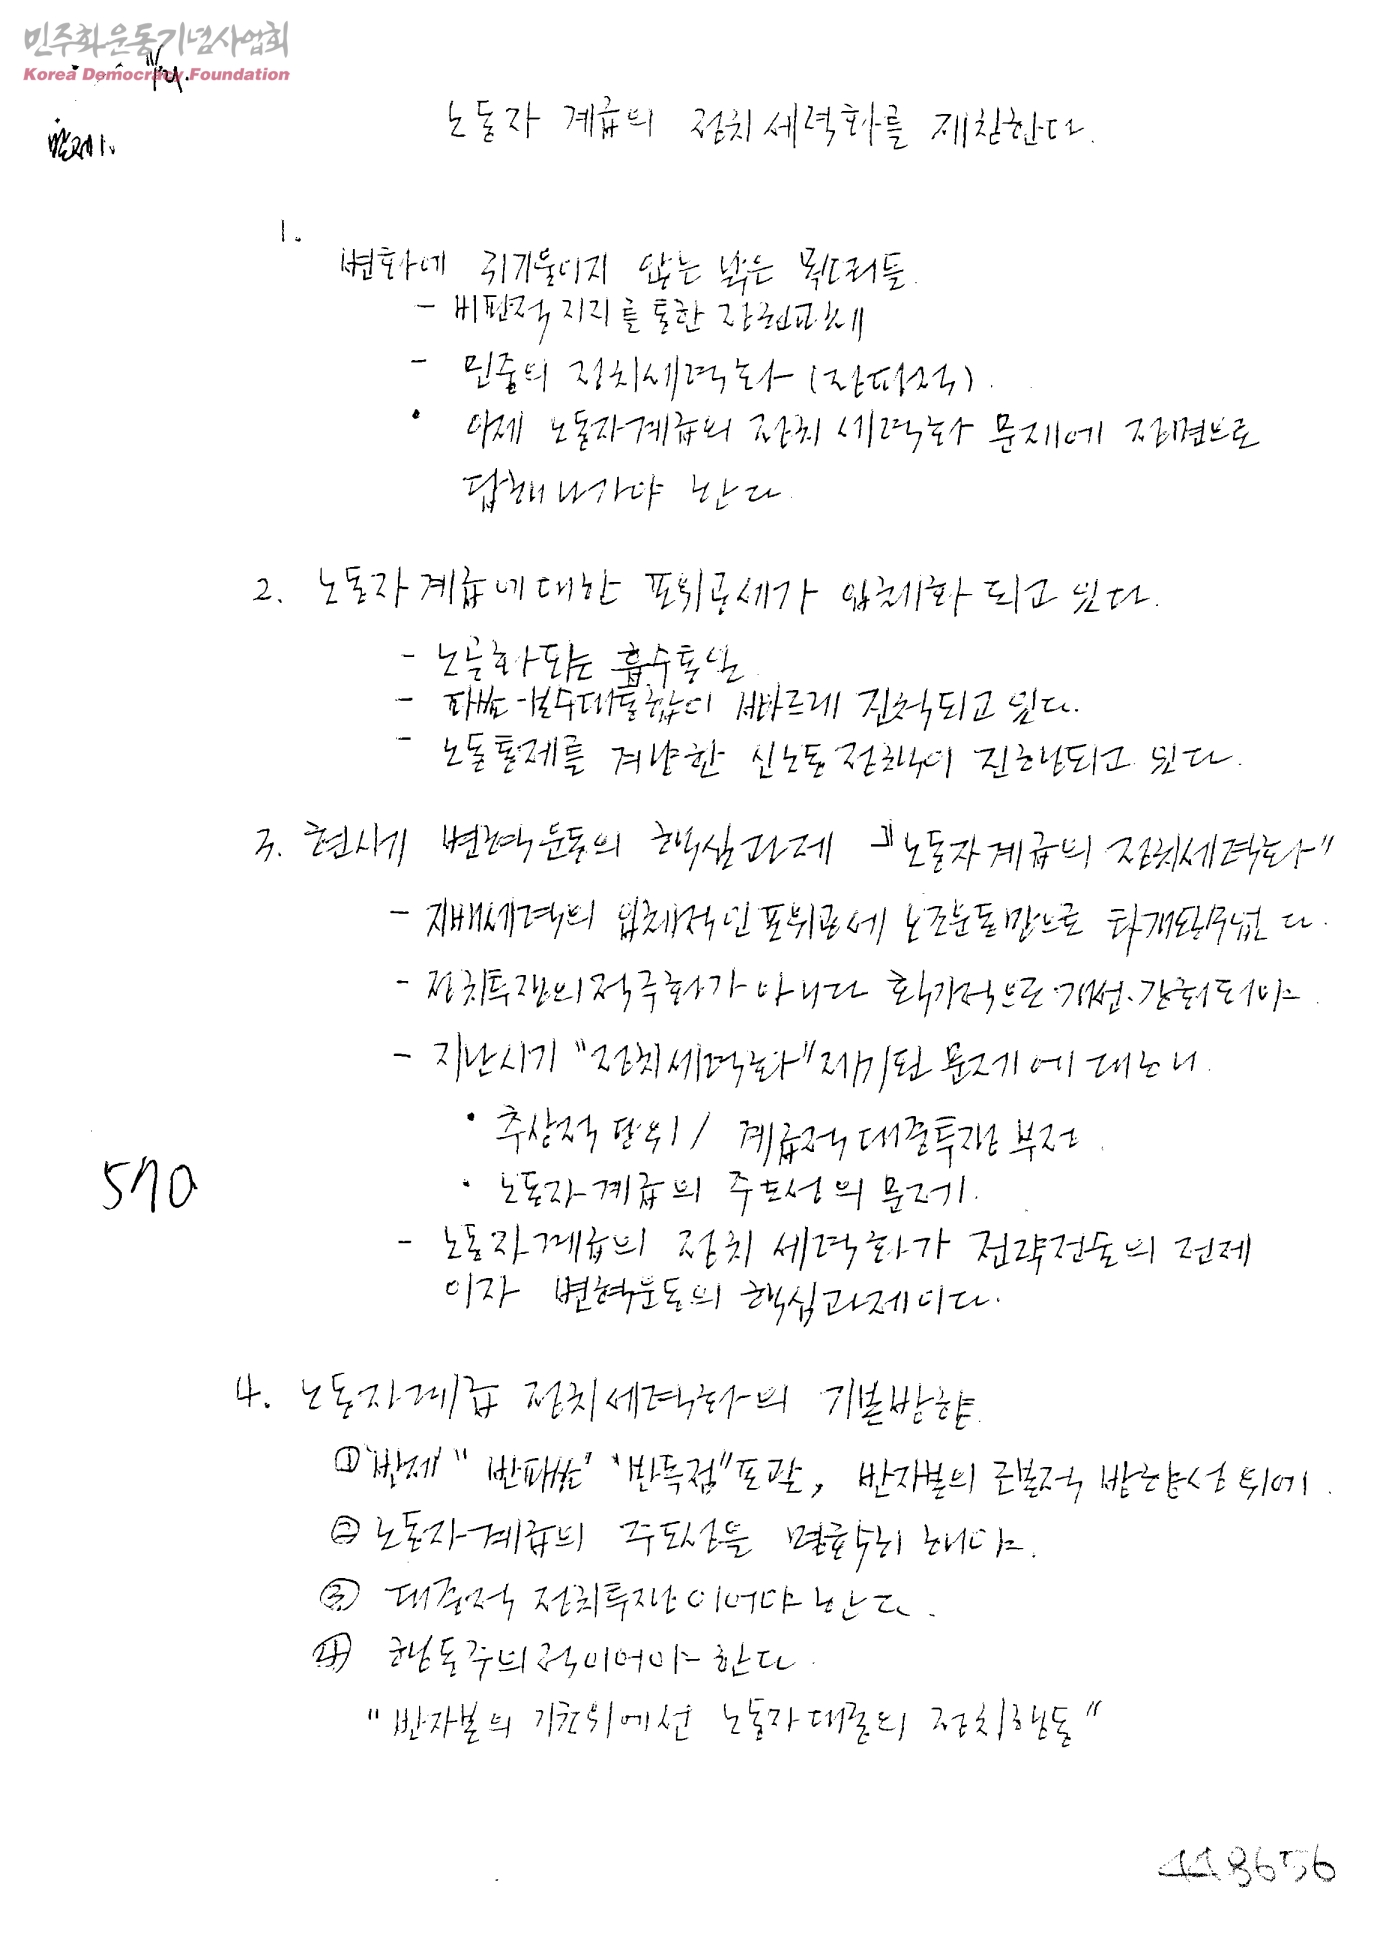 민주화운동기념사업회
Korea Democracy Foundation
발제1.
노동자 계급의 정치세력화를 제창한다.
1.
변화에 귀기울이지 않는 낡은 목소리들.
- 비판적지지를 통한 정권교체
- 민중의 정치세력화 (정파적).
• 이제 노동자계급의 정치 세력화 문제에 정면으로
답해나가야 한다.
2. 노동자계급에 대한 포위공세가 입체화 되고 있다.
- 노골화되는 흡수통일
- 파쇼-보수대통합이 빠르게 진척되고 있다.
- 노동통제를 겨냥한 신노동정책이 진행되고 있다.
3. 현시기 변혁운동의 핵심과제 "노동자계급의 정치세력화"
- 지배세력의 입체적인 포위공세 노조운동만으로 타개될수없다.
- 정치투쟁의 적극화가 아니다 획기적으로 개선·강화되야.
- 지난시기 "정치세력화" 제기된 문제에 대하여.
• 추상적 단위 / 계급적 대중투쟁 부재.
• 노동자계급의 주도성의 문제.
- 노동자계급의 정치 세력화가 전략전술의 전제
이자 변혁운동의 핵심과제이다.
570
4. 노동자계급 정치세력화의 기본방향
① "반제" "반파쇼" "반독점" 포괄, 반자본의 근본적 방향성 위에.
② 노동자계급의 주도성을 명확히 해야.
③ 대중적 정치투쟁이어야 한다.
④ 행동주의적이어야 한다.
"반자본의 기초위에선 노동자대중의 정치행동"
448656